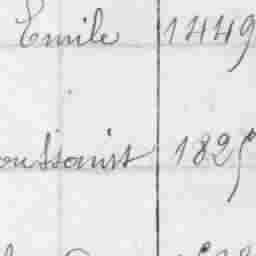 Emile 1449
oussaint 1825